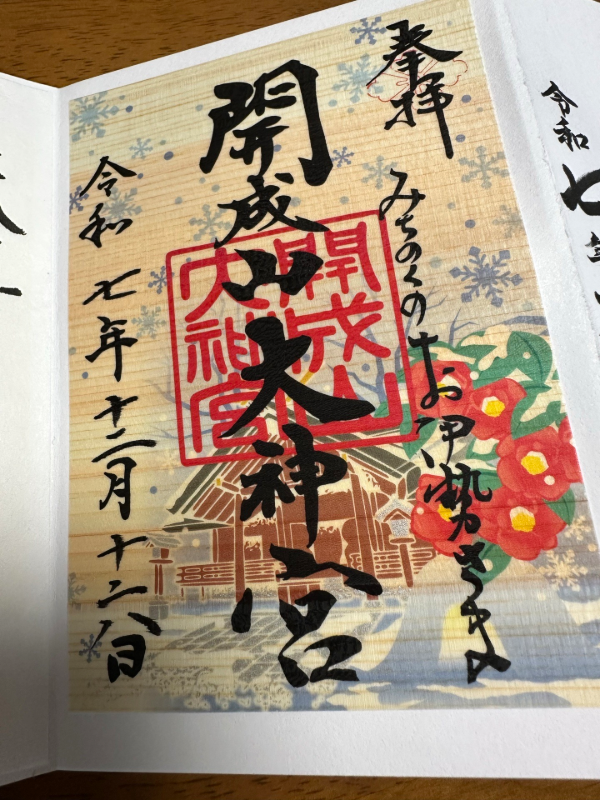 奉拝
みちのくのお伊勢さま
開成山大神宮
令和七年十二月十六日
開成山
大神宮
令和七年